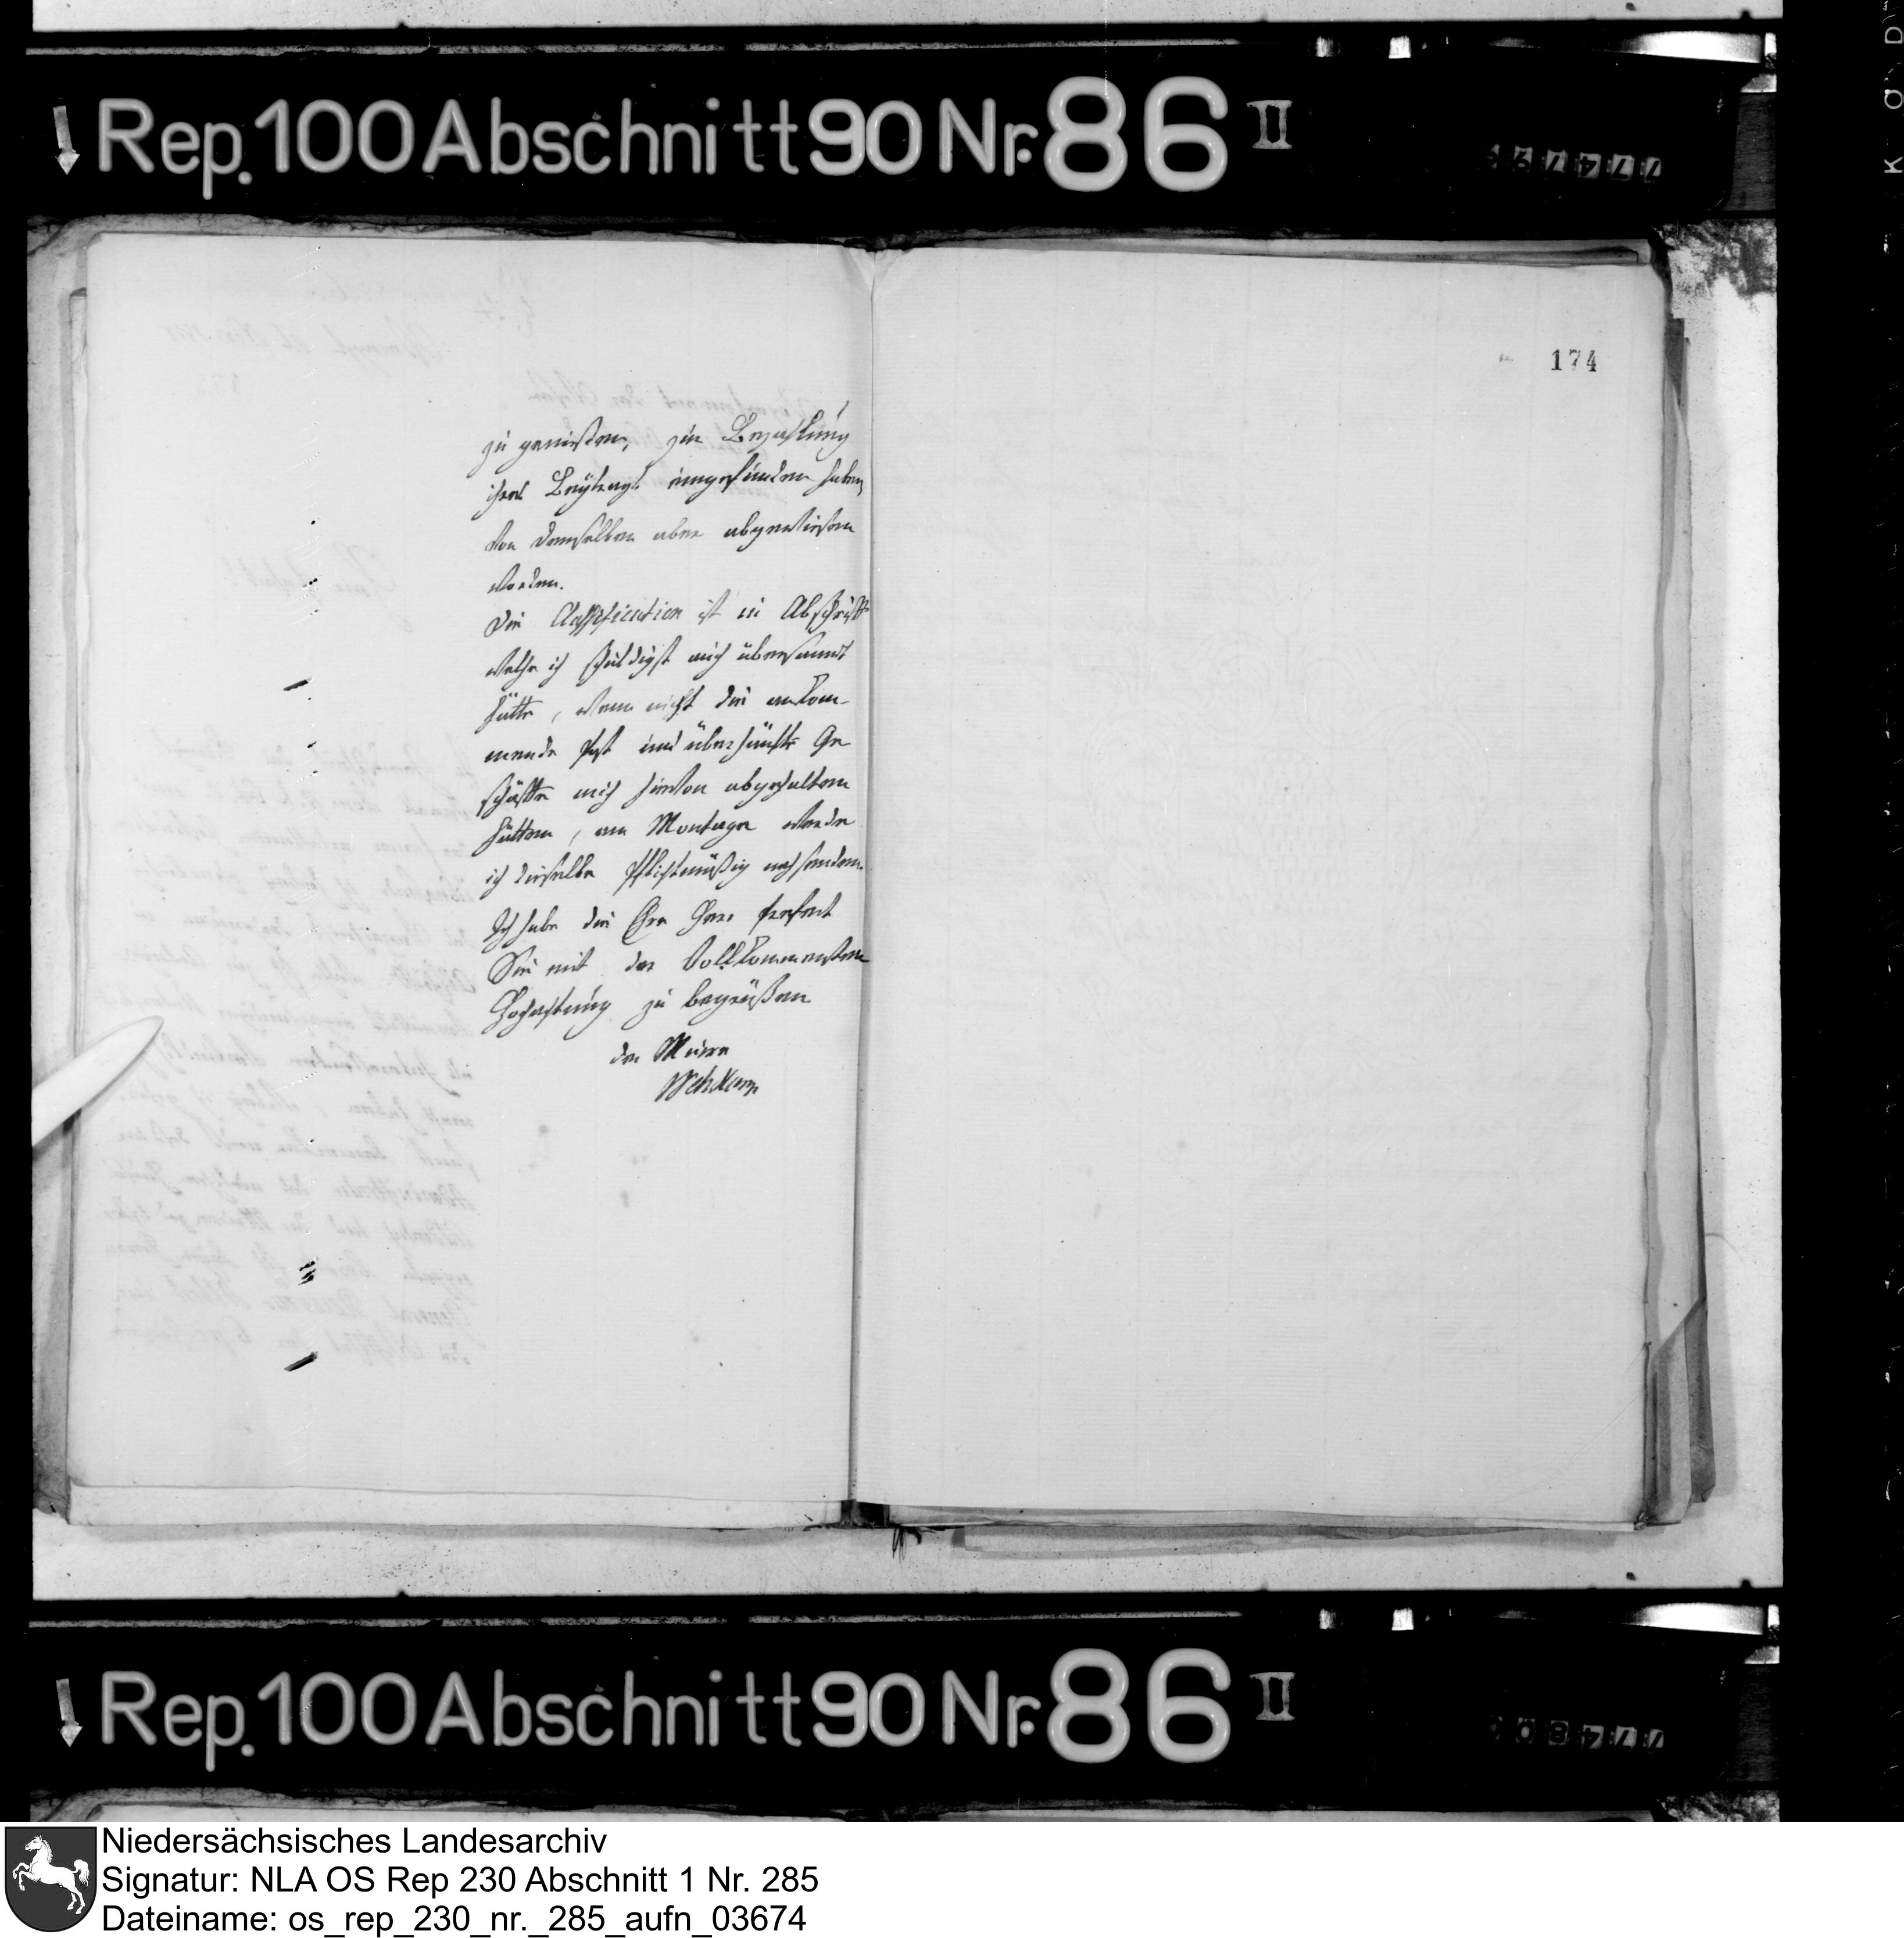 Rep. 100 Abschnitt 90 Nr. 86 II
174
zu genießen, zur Bezahlung
ihres Beytrags eingefunden haben,
von demselben aber abgewiesen
worden.
Die Classification ist in Abschrift
welche ich schuldigst mich übersandt
hätte, wenn nicht die ankom-
mende Post und überhäufte Ge
schäfte mich hievon abgehalten
hätten, am Montage werde
ich dieselbe Pflichtmäßig nachsenden.
Ich habe die Ehre Herr Praefect
Sie mit der Vollkommensten
Hochachtung zu begrüßen
der Maire
Wehrkamp
Rep. 100 Abschnitt 90 Nr. 86 II
Niedersächsisches Landesarchiv
Signatur: NLA OS Rep 230 Abschnitt 1 Nr. 285
Dateiname: os_rep_230_nr._285_aufn_03674